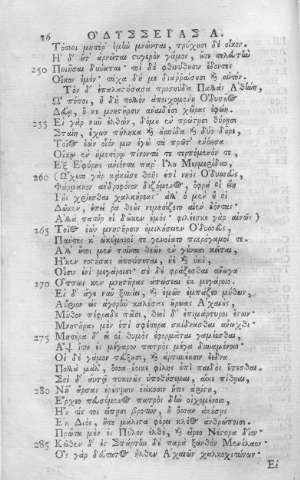 Ο'ΔΥΣΣΕΙΑΣ Α.
Τόσσοι μητέρ' ἐμὴν μνῶνται, τρύχουσι δὲ οἶκον.
Ἡ δ' οὔτ' ἀρνεῖται στυγερὸν γάμον, οὔτε τελευτὴν
250 Ποιῆσαι δύναται· τοὶ δὲ φθινύθουσιν ἔδοντες
Οἶκον ἐμόν· τάχα δή με διαρραίσουσι καὶ αὐτόν.
Τὸν δ' ἐπαλαστήσασα προσηύδα Παλλὰς Ἀθήνη,
Ὢ πόποι, ἦ δὴ πολλὸν ἀποιχομένου Ὀδυσῆος
Δεύῃ, ὅ κε μνηστῆρσιν ἀναιδέσι χεῖρας ἐφείη.
255 Εἰ γὰρ νῦν ἐλθὼν, δόμου ἐν πρώτῃσι θύρῃσι
Σταίη, ἔχων πήληκα καὶ ἀσπίδα καὶ δύο δοῦρε,
Τοῖος ἐὼν οἷόν μιν ἐγὼ τὰ πρῶτ' ἐνόησα
Οἴκῳ ἐν ἡμετέρῳ πίνοντά τε τερπόμενόν τε,
Ἐξ Ἐφύρης ἀνιόντα παρ' Ἴλου Μερμερίδαο,
260 (Ὤιχετο γὰρ κἀκεῖσε θοῆς ἐπὶ νηὸς Ὀδυσσεὺς,
Φάρμακον ἀνδροφόνον διζήμενος, ὄφρα οἱ εἴη
Ἰοὺς χρίεσθαι χαλκήρεας· ἀλλ' ὁ μὲν οὔ οἱ
Δῶκεν, ἐπεί ῥα θεοὺς νεμεσίζετο αἰὲν ἐόντας·
Ἀλλὰ πατήρ οἱ δῶκεν ἐμός· φιλέεσκε γὰρ αἰνῶς·)
265 Τοῖος ἐὼν μνηστῆρσιν ὁμιλήσειεν Ὀδυσσεύς,
Πάντες κ' ὠκύμοροί τε γενοίατο πικρόγαμοί τε.
Ἀλλ' ἤτοι μὲν ταῦτα θεῶν ἐν γούνασι κεῖται,
Ἤ κεν νοστήσας ἀποτίσεται, ἠὲ καὶ οὐκὶ,
Οἷσιν ἐνὶ μεγάροισι· σὲ δὲ φράζεσθαι ἄνωγα
270 Ὅππως κεν μνηστῆρας ἀπώσεαι ἐκ μεγάροιο.
Εἰ δ' ἄγε νῦν ξυνίει, καὶ ἐμῶν ἐμπάζεο μύθων,
Αὔριον εἰς ἀγορὴν καλέσας ἥρωας Ἀχαιοὺς,
Μῦθον πέφραδε πᾶσι, θεοὶ δ' ἐπιμάρτυροι ἔστων·
Μνηστῆρας μὲν ἐπὶ σφέτερα σκίδνασθαι ἄνωχθι·
275 Μητέρα δ' εἴ οἱ θυμὸς ἐφορμᾶται γαμέεσθαι,
Ἂψ ἴτω ἐς μέγαρον πατρὸς μέγα δυναμένοιο·
Οἱ δὲ γάμον τεύξουσι, καὶ ἀρτυνέουσιν ἔεδνα
Πολλὰ μάλ', ὅσσα ἔοικε φίλης ἐπὶ παιδὸς ἕπεσθαι.
Σοὶ δ' αὐτῷ πυκινῶς ὑποθήσομαι, αἴκε πίθηαι,
280 Νῆ' ἄρσας ἐρέτῃσιν ἐείκοσιν ἥτις ἀρίστη,
Ἔρχεο πευσόμενος πατρὸς δὴν οἰχομένοιο,
Ἤν τίς τοι εἴπῃσι βροτῶν, ἢ ὄσσαν ἀκούσῃς
Ἐκ Διὸς, ἥτε μάλιστα φέρει κλέος ἀνθρώποισι.
Πρῶτα μὲν ἐς Πύλον ἐλθὲ, καὶ εἴρεο Νέστορα δῖον·
285 Κεῖθεν δ' ἐς Σπάρτην δὲ παρὰ ξανθὸν Μενέλαον·
Ὃς γὰρ δεύτατος ἦλθεν Ἀχαιῶν χαλκοχιτώνων·
Εἰ